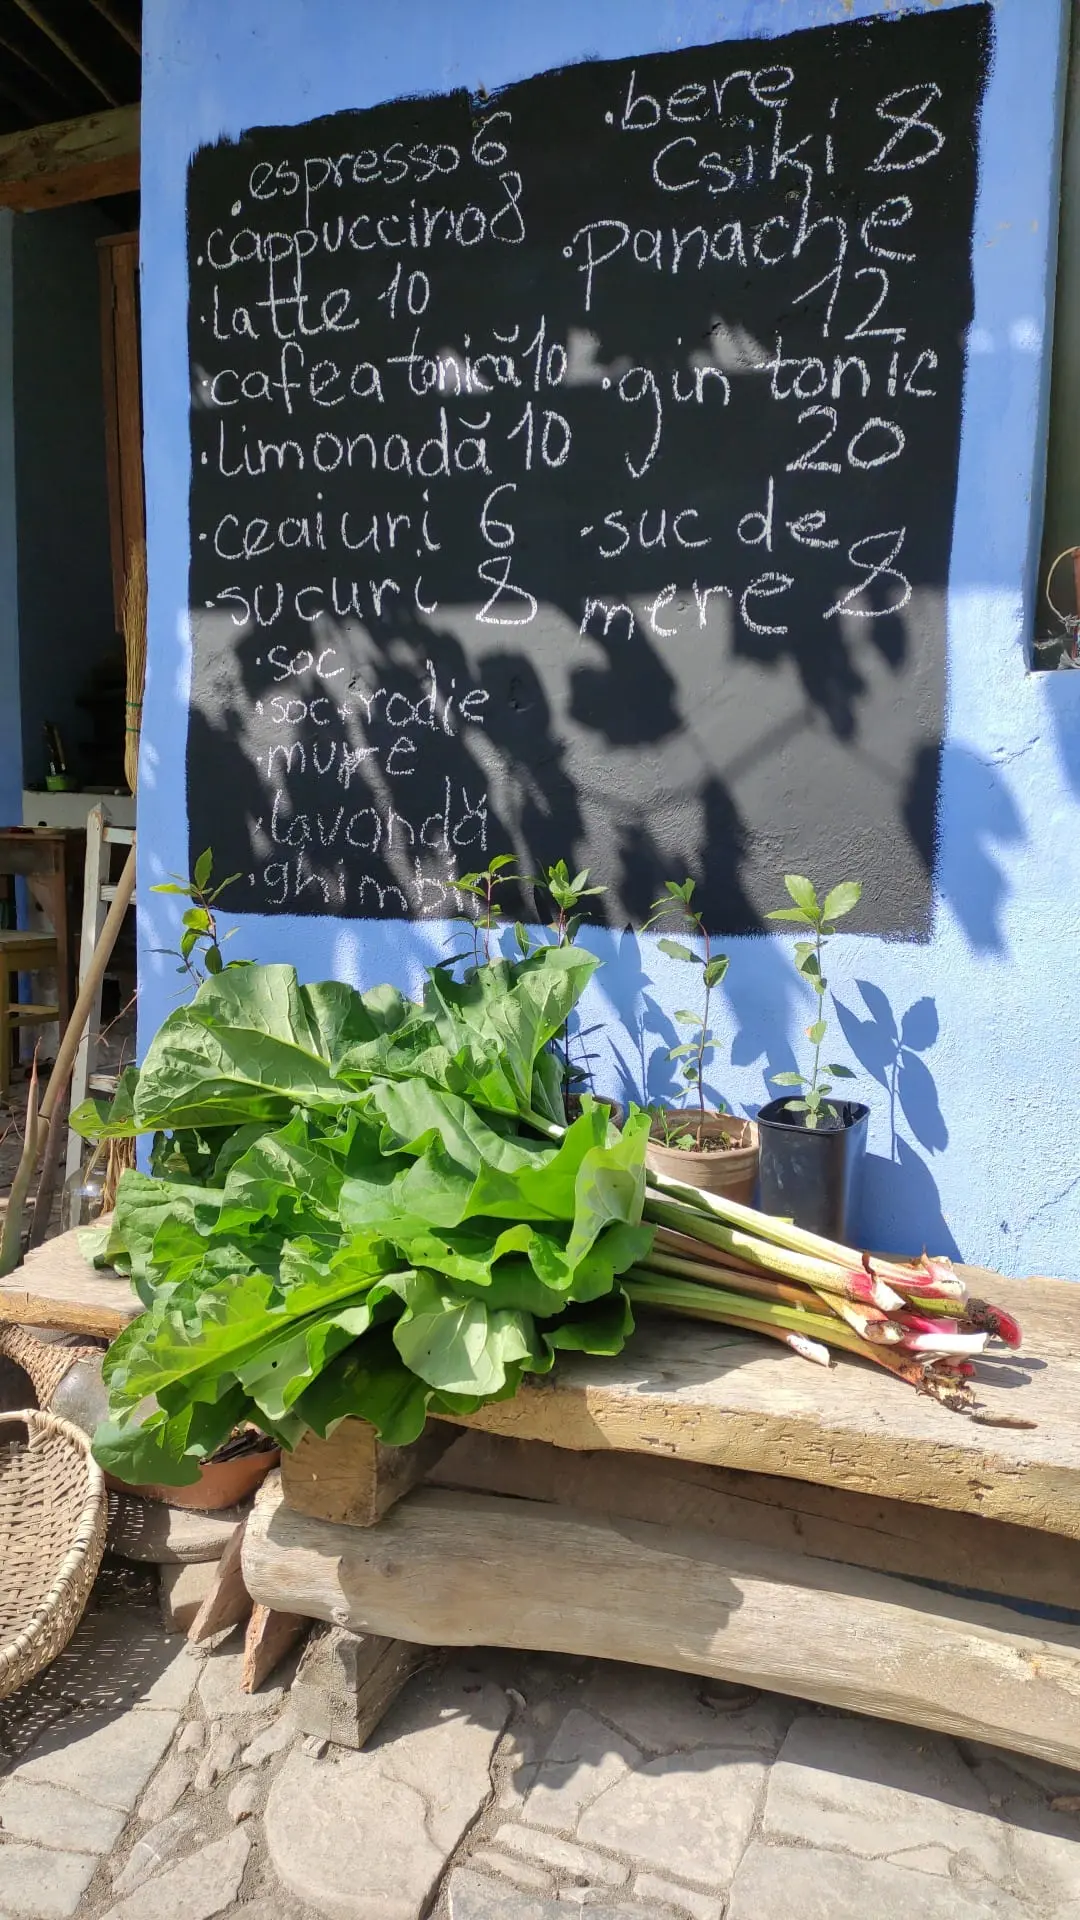 .espresso 6
.cappuccino 8
.latte 10
.cafea tonică 10
.limonadă 10
.ceaiuri 6
.sucuri 8
.soc
.soc+rodie
.mure
.lavandă
.ghimbir
.bere
Csiki 8
.panache
12
.gin tonic
20
.suc de
mere 8